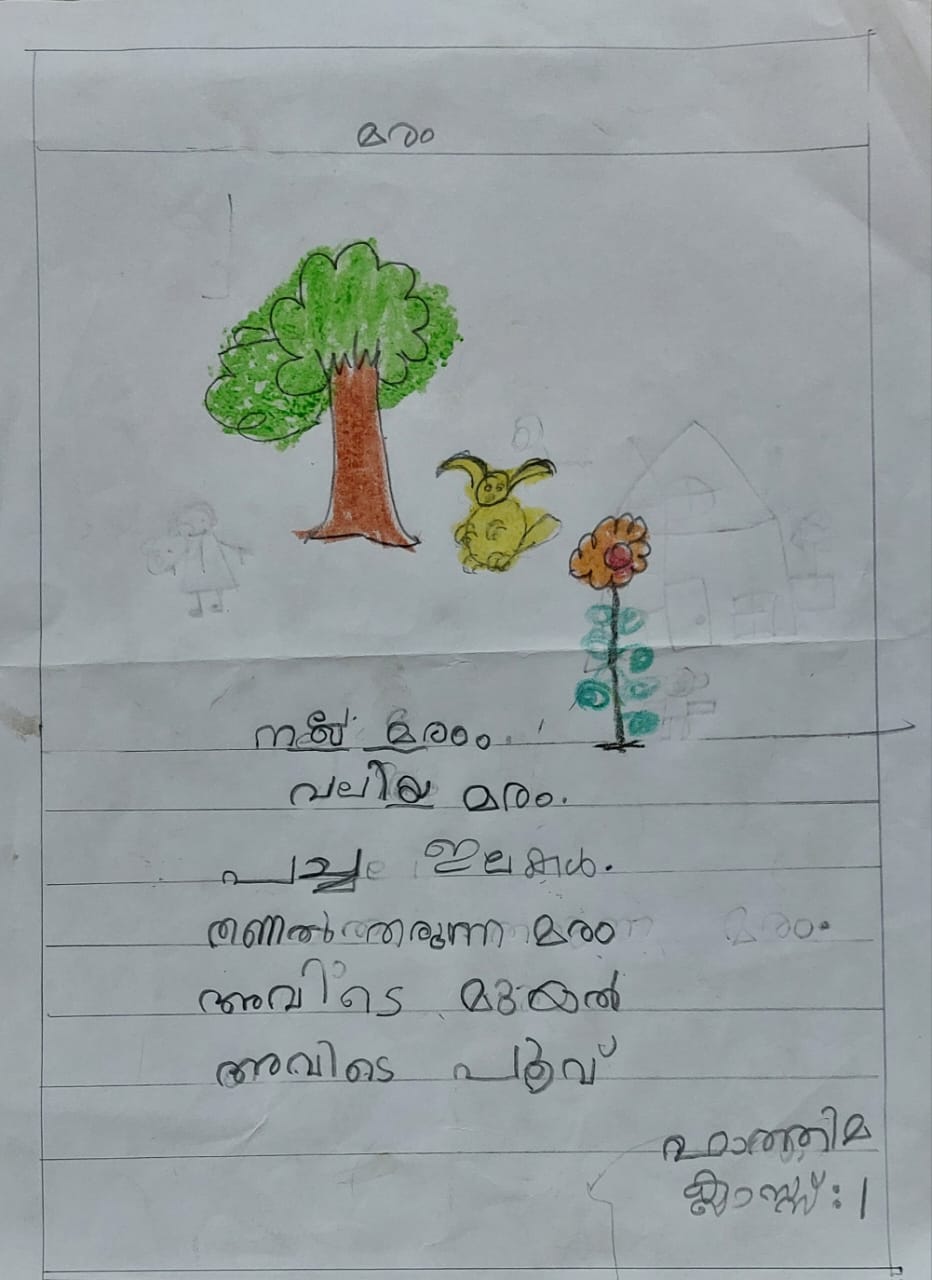 മരം
നല്ല മരം.
വലിയ മരം.
പച്ച ഇലകൾ.
തണൽ തരുന്ന മരം
അവിടെ മുയൽ
അവിടെ പൂവ്
ഫാത്തിമ
ക്ലാസ്സ്: 1